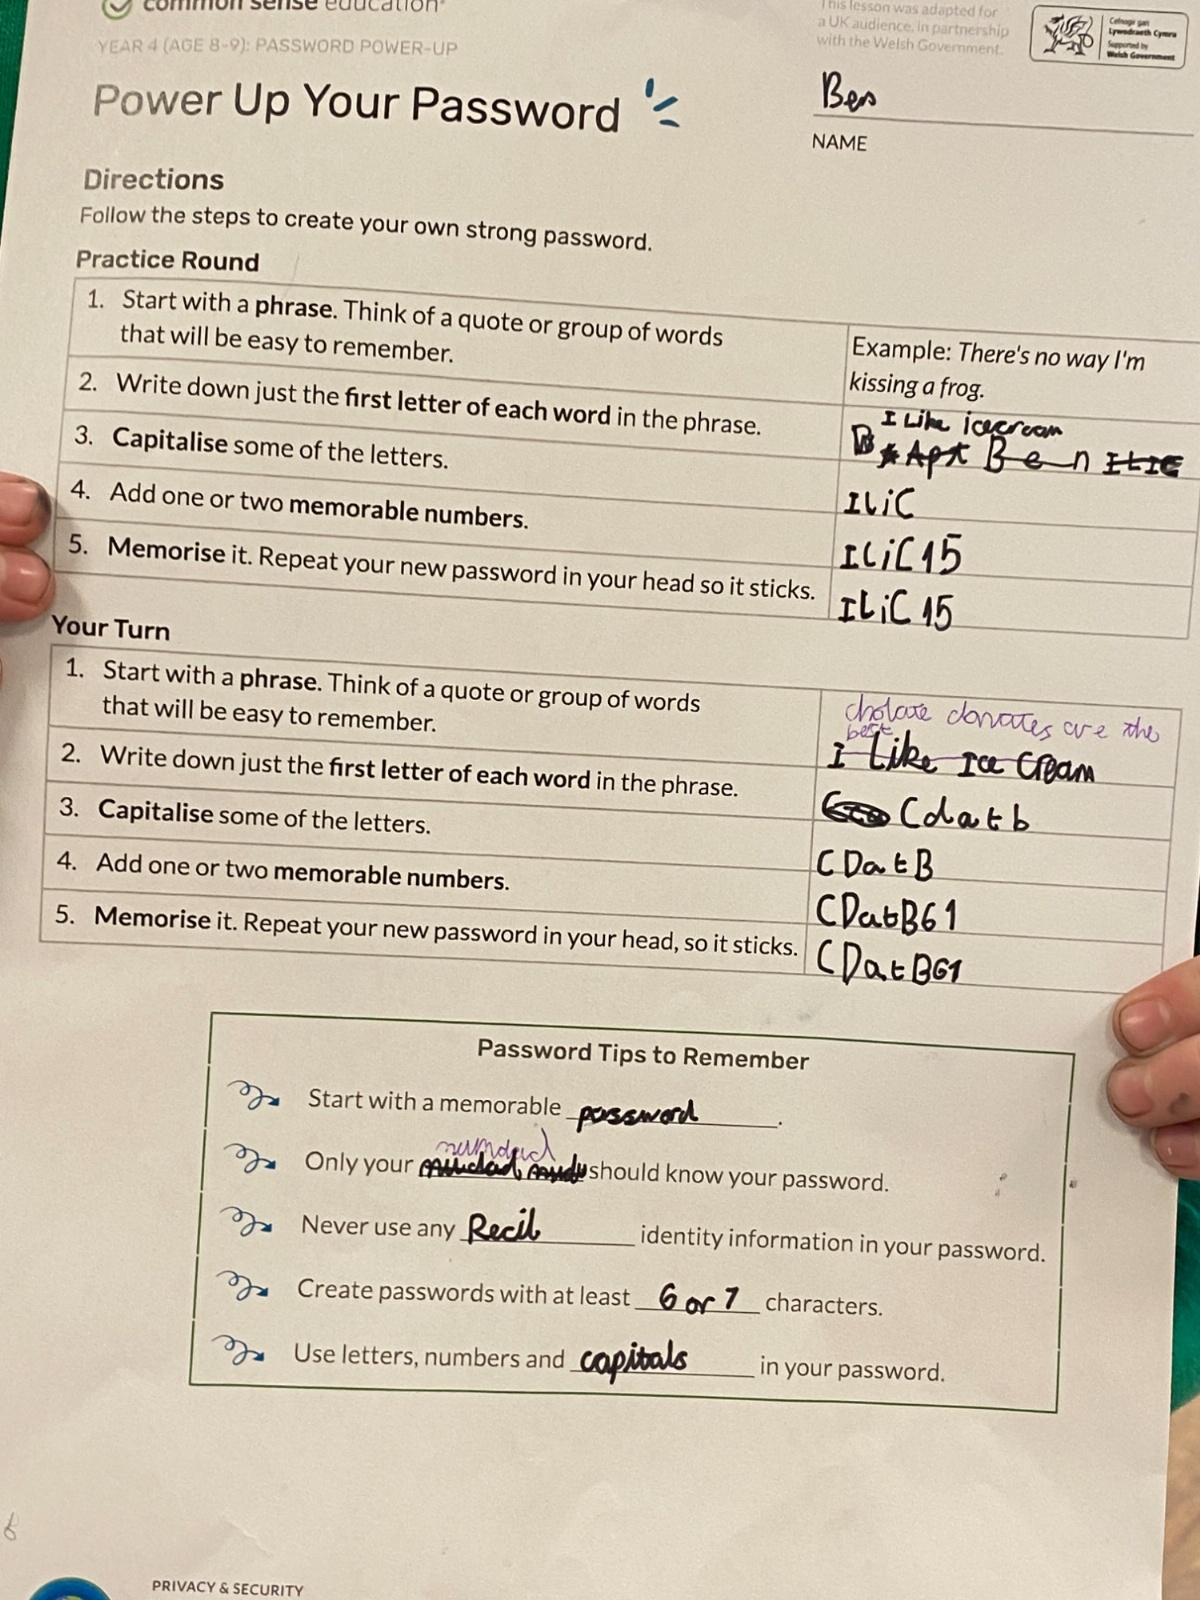 common sense education
This lesson was adapted for
a UK audience, in partnership
with the Welsh Government.
Cefnogir gan
Lywodraeth Cymru
Supported by
Welsh Government
YEAR 4 (AGE 8-9): PASSWORD POWER-UP
Power Up Your Password
Ben
NAME
Directions
Follow the steps to create your own strong password.
Practice Round
1. Start with a phrase. Think of a quote or group of words
that will be easy to remember.
Example: There's no way I'm
kissing a frog.
2. Write down just the first letter of each word in the phrase.
I Like icecream
Ben ILIC
3. Capitalise some of the letters.
ILiC
4. Add one or two memorable numbers.
ILiC15
5. Memorise it. Repeat your new password in your head so it sticks.
ILiC 15
Your Turn
1. Start with a phrase. Think of a quote or group of words
that will be easy to remember.
cholate donates are the
best
I Like Ice Cream
2. Write down just the first letter of each word in the phrase.
Cdatb
3. Capitalise some of the letters.
CDatB
4. Add one or two memorable numbers.
CDatB61
5. Memorise it. Repeat your new password in your head, so it sticks.
CDatB61
Password Tips to Remember
Start with a memorable password.
Only your should know your password.
Never use any Recil identity information in your password.
Create passwords with at least 6 or 7 characters.
Use letters, numbers and capitals in your password.
PRIVACY & SECURITY